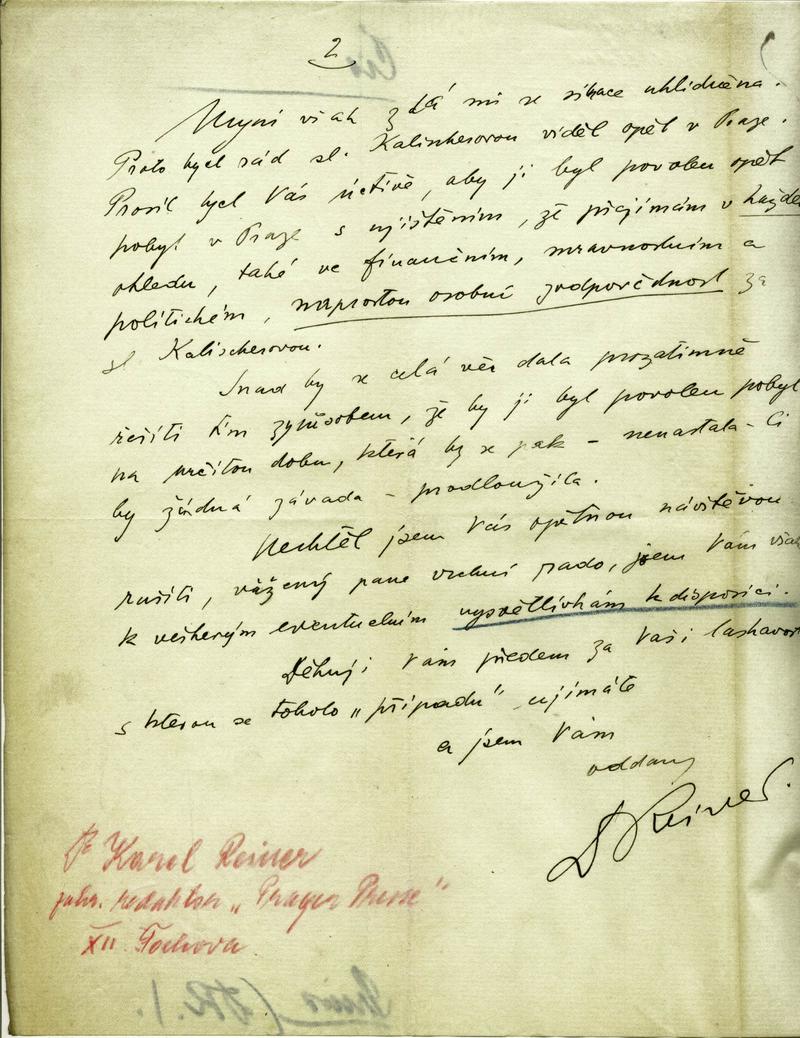 2
Nyní však zdá mi se situace uklidněna.
Proto bych rád sl. Kalischerovou viděl opět v Praze.
Prosil bych Vás uctivě, aby jí byl povolen opět
pobyt v Praze s ujištěním, že přejímám v každém
ohledu, také ve finančním, mravnostním a
politickém, naprostou osobní zodpovědnost za
sl Kalischerovou.
Snad by se celá věc dala prozatimně
řešiti tím způsobem, že by jí byl povolen pobyt
na určitou dobu, která by se pak - nenastala-li
by žádná závada - prodloužila.
Nechtěl jsem Vás opětnou návštěvou
rušiti, vážený pane vrchní rado, jsem Vám však
k veškerým eventuelním vysvětlivkám k disposici.
Děkuji Vám předem za Vaši laskavost
s kterou se tohoto „případu" ujímáte
a jsem Vám
oddaný
Dr Reiner.
Karel Reiner
redaktor „Prager Presse"
XII Fochova